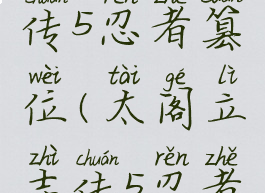 chuán rěn zhě cuàn
传5忍者篡
wèi tài gé lì
位(太阁立
zhì chuán rěn zhě
志传5忍者